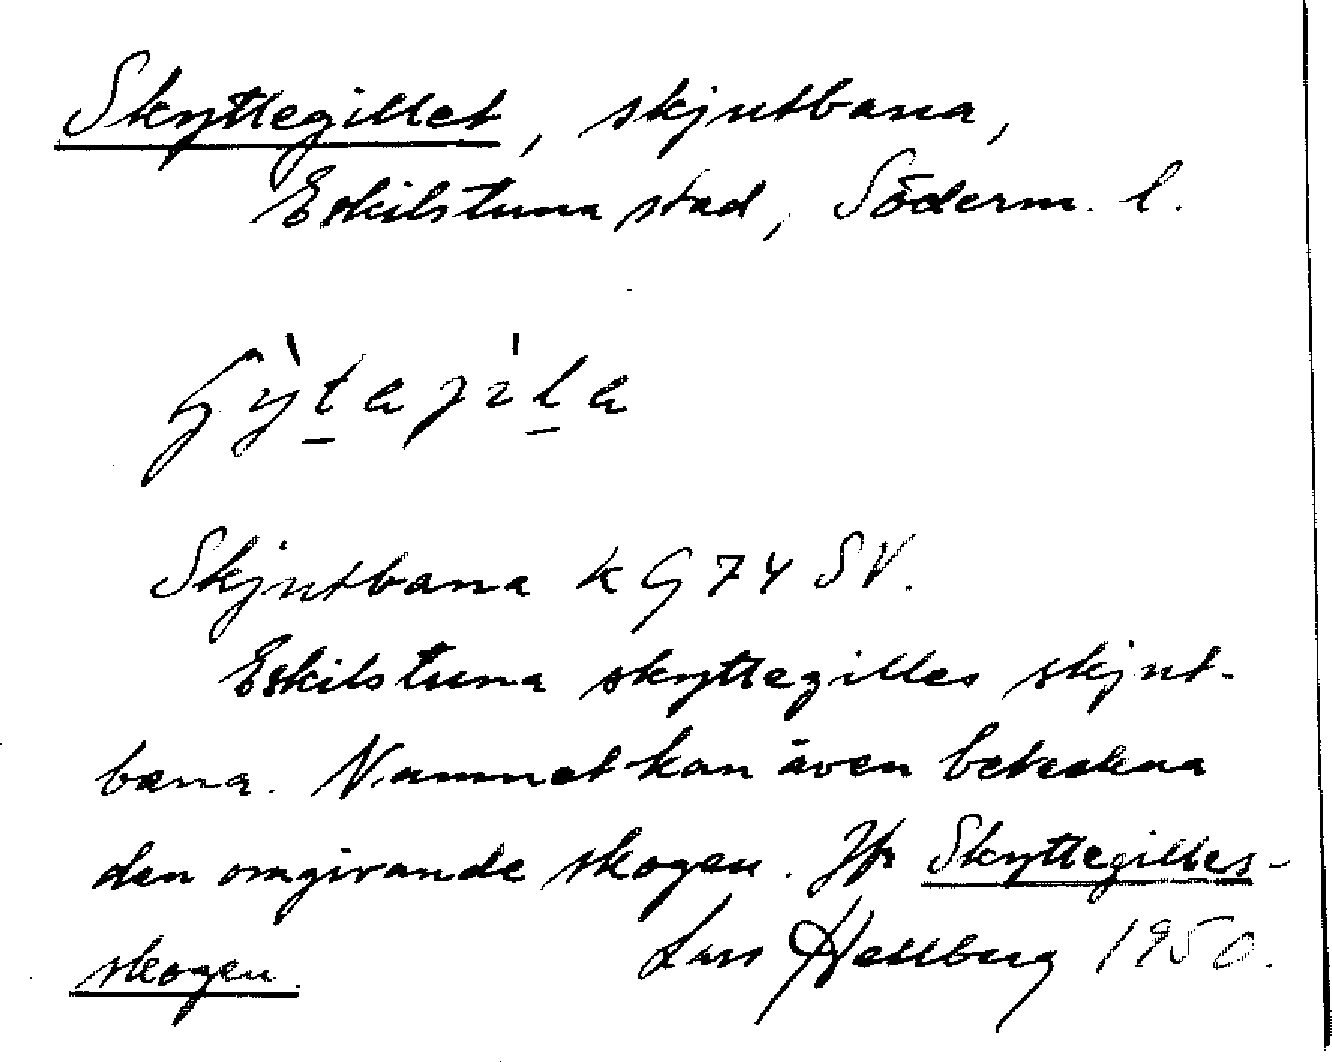 Skyttegillet, skjutbana,
Eskilstuna stad, Söderm. l.
Skjutbana k G 74 SV.
Eskilstuna skyttegilles skjut-
bana. Namnet kan även beteckna
den omgivande skogen. Jfr Skyttegilles-
skogen. Lars Hellberg 1950.